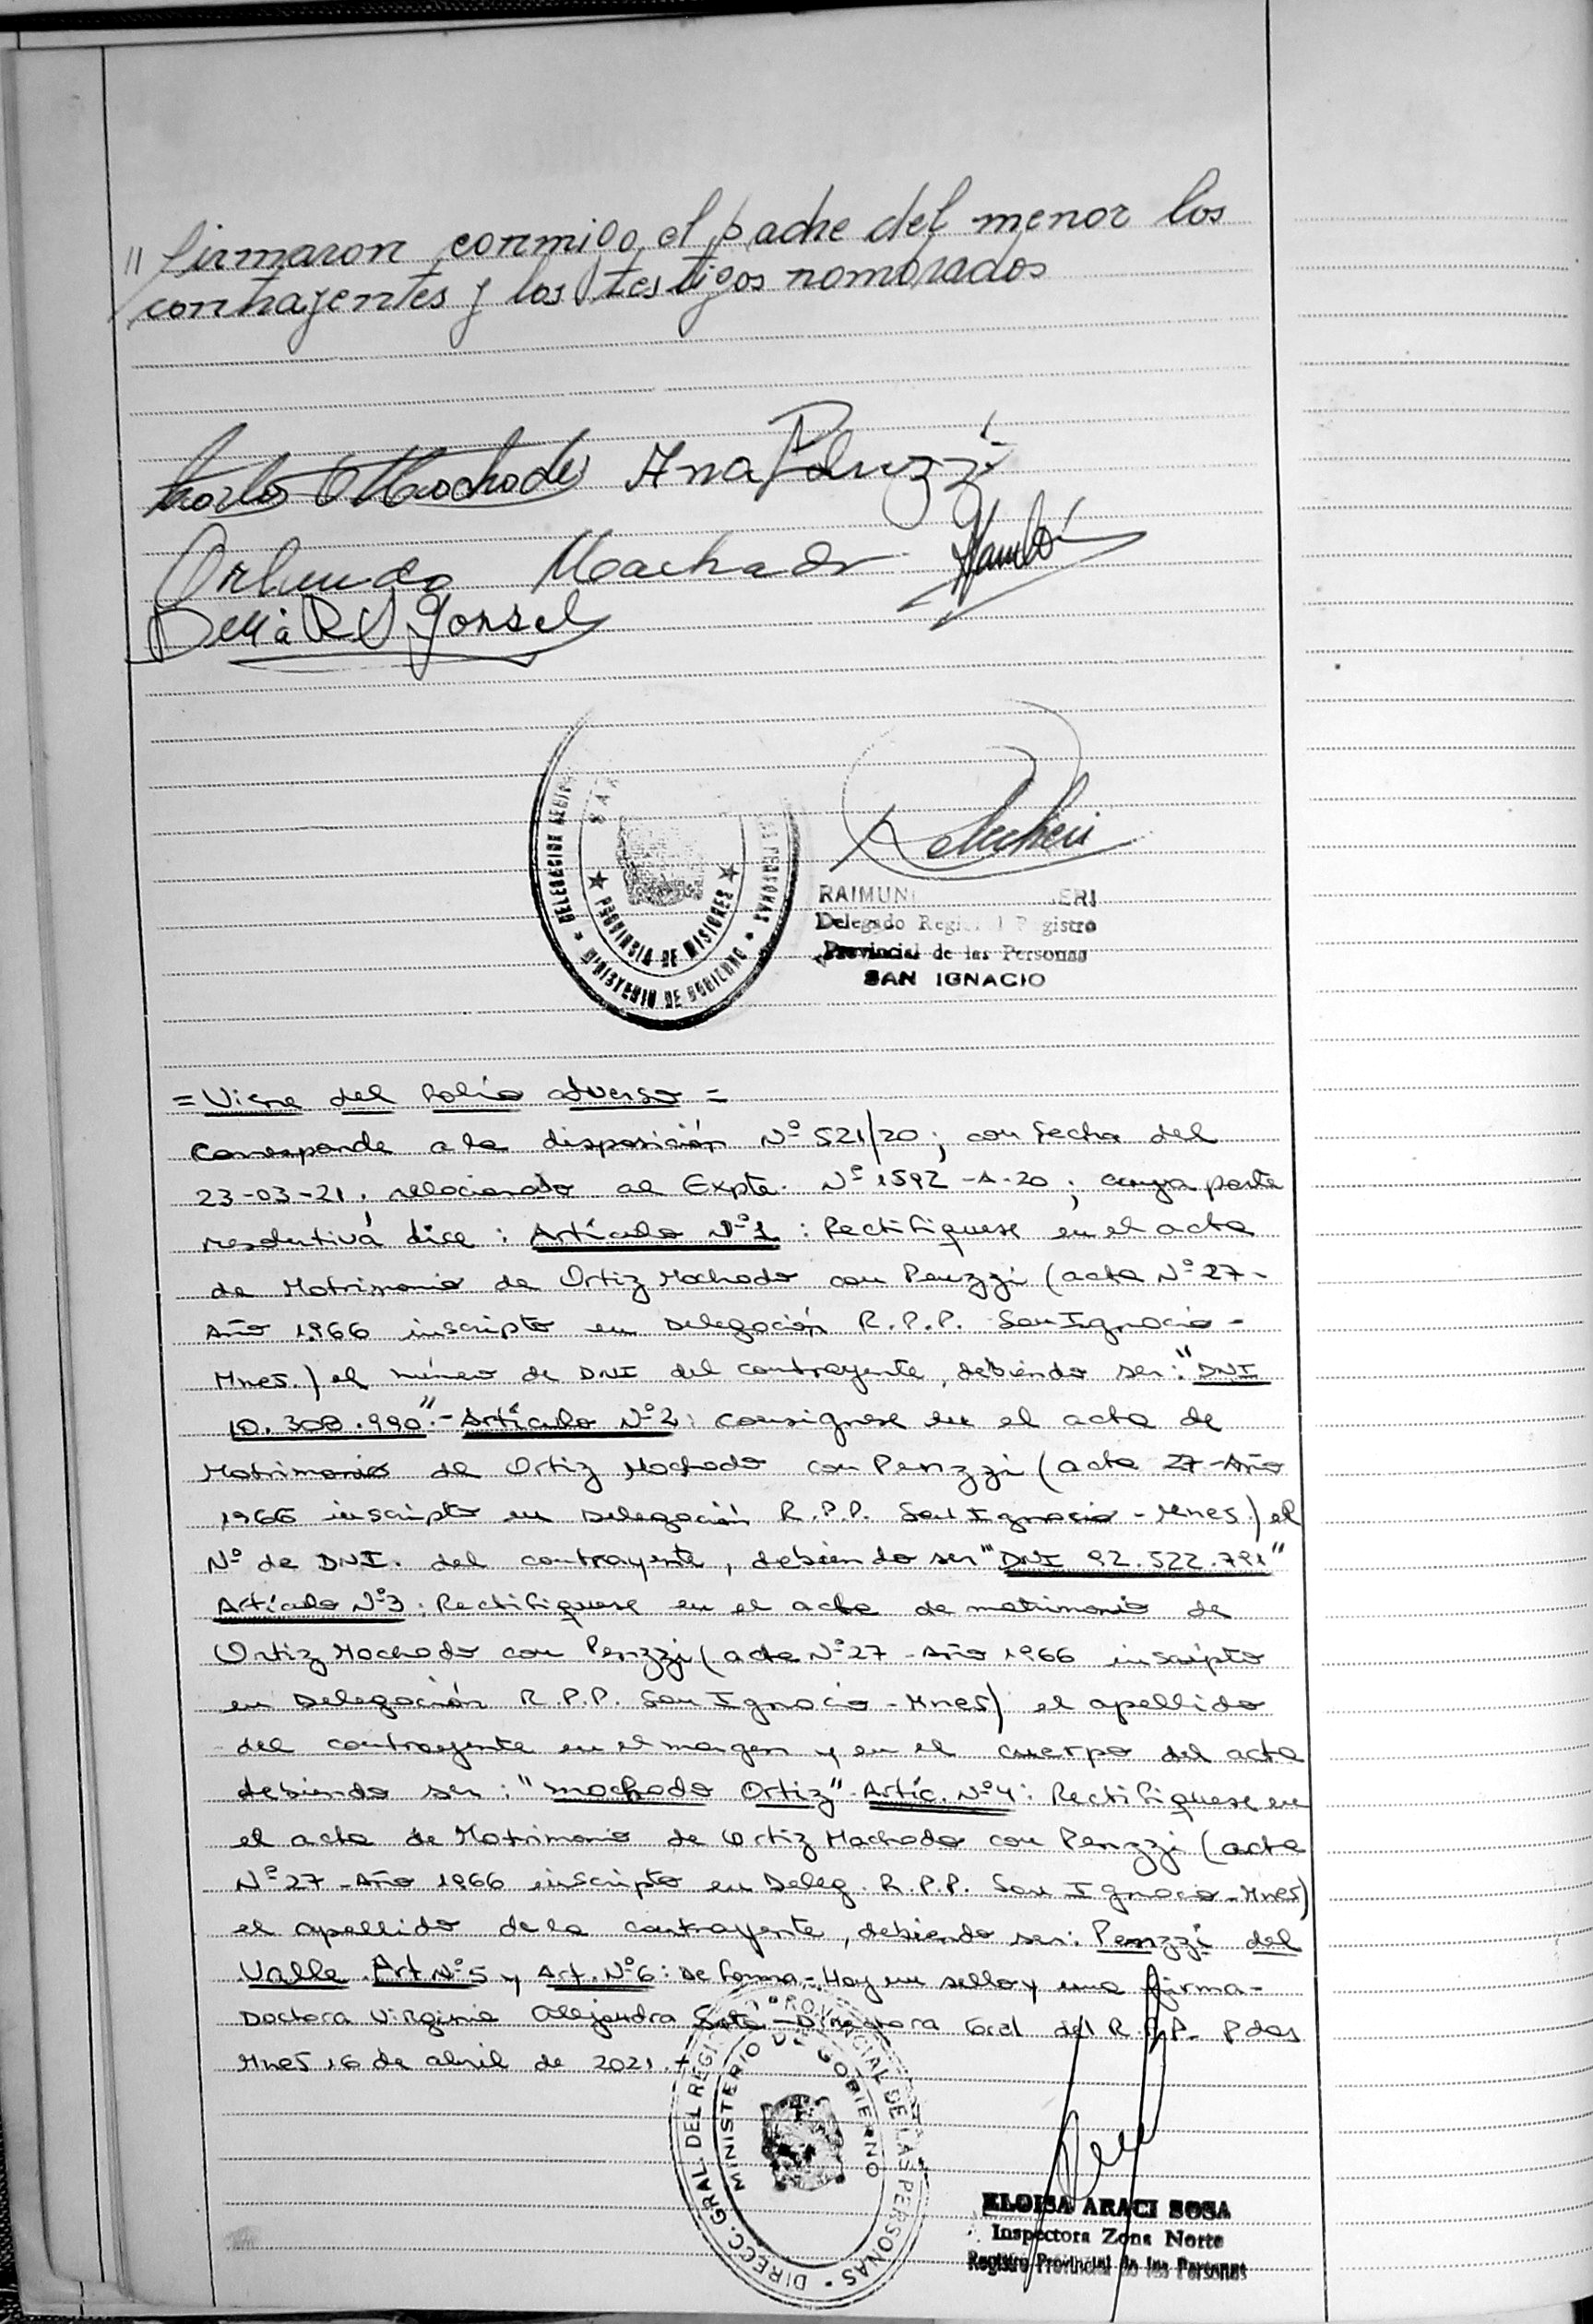 " firmaron conmigo el padre del menor los
contrayentes y los testigos nombrados
Machado Ana Peruzzi
Orlando Machado
RAIMUN ERI
Delegado Regi l R gistro
Provincial de las Personas
SAN IGNACIO
★ PROVINCIA DE MISIONES ★
MINISTERIO DE GOBIERNO
= Viene del folio adverso =
Corresponde a la disposición Nº 521/20; con fecha del
23-03-21, relacionado al Expte. Nº 1592-A-20; cuya parte
resolutiva dice: Artículo Nº 1: Rectifiquese en el acta
de Matrimonio de Ortiz Machado con Peruzzi (acta Nº 27-
Año 1966 inscripto en Delegación R.P.P. San Ignacio -
Mnes.) el número de DNI del contrayente, debiendo ser: "DNI
10.308.990".- Artículo Nº 2: Consignese en el acta de
Matrimonio de Ortiz Machado con Peruzzi (acta 27-Año
1966 inscripto en Delegación R.P.P. San Ignacio - Mnes.) el
Nº de DNI. del contrayente, debiendo ser "DNI 92.522.791"
Artículo Nº 3: Rectifiquese en el acta de matrimonio de
Ortiz Machado con Peruzzi (acta Nº 27 - Año 1966 inscripto
en Delegación R.P.P. San Ignacio - Mnes) el apellido
del contrayente en el margen y en el cuerpo del acta
debiendo ser: "Machado Ortiz". Artíc. Nº 4: Rectifiquese en
el acta de Matrimonio de Ortiz Machado con Peruzzi (acta
Nº 27 - Año 1966 inscripto en Deleg. R.P.P. San Ignacio - Mnes)
el apellido de la contrayente, debiendo ser: Peruzzi del
Valle. Art Nº 5 y Art. Nº 6: De forma.- Hay un sello y una firma-
Doctora Virginia Alejandra - Directora Gral del R.P.P. Pdas
Mnes 16 de abril de 2021.-
DIRECC. GRAL. DEL REGISTRO PROVINCIAL DE LAS PERSONAS
MINISTERIO DE GOBIERNO
ELOISA ARACI SOSA
Inspectora Zona Norte
Registro Provincial de las Personas